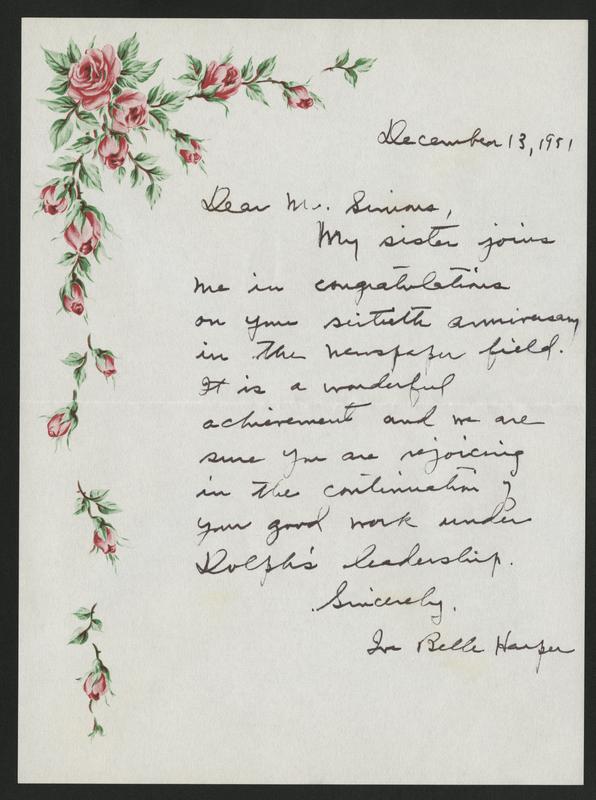 December 13, 1951
Dear Mr. Simons,
My sister joins
me in congratulations
on your sixtieth anniversary
in the newspaper field.
It is a wonderful
achievement and we are
sure you are rejoicing
in the continuation of
your good work under
Dolph's leadership.
Sincerely,
Iva Belle Harper